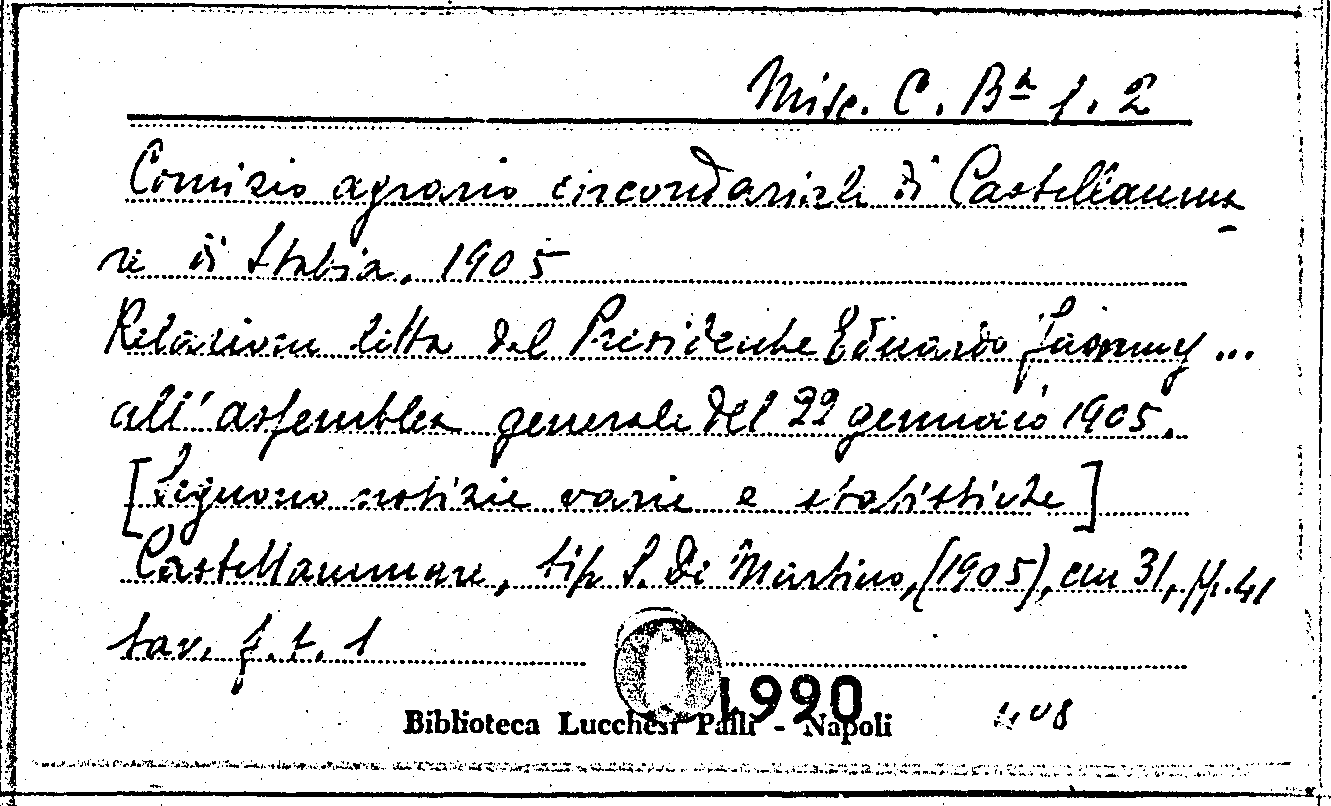 Misc. C. Bª 1. 2
Comizio agrario circondariale di Castellamma-
re di Stabia. 1905
Relazione letta dal Presidente Eduardo Jammy ...
all'assemblea generale del 22 gennaio 1905.
[Seguono notizie varie e statistiche]
Castellammare, tip. S. Di Martino, (1905), cm 31, pp. 41
tav. f. t. 1
1990
Biblioteca Lucchesi Palli - Napoli